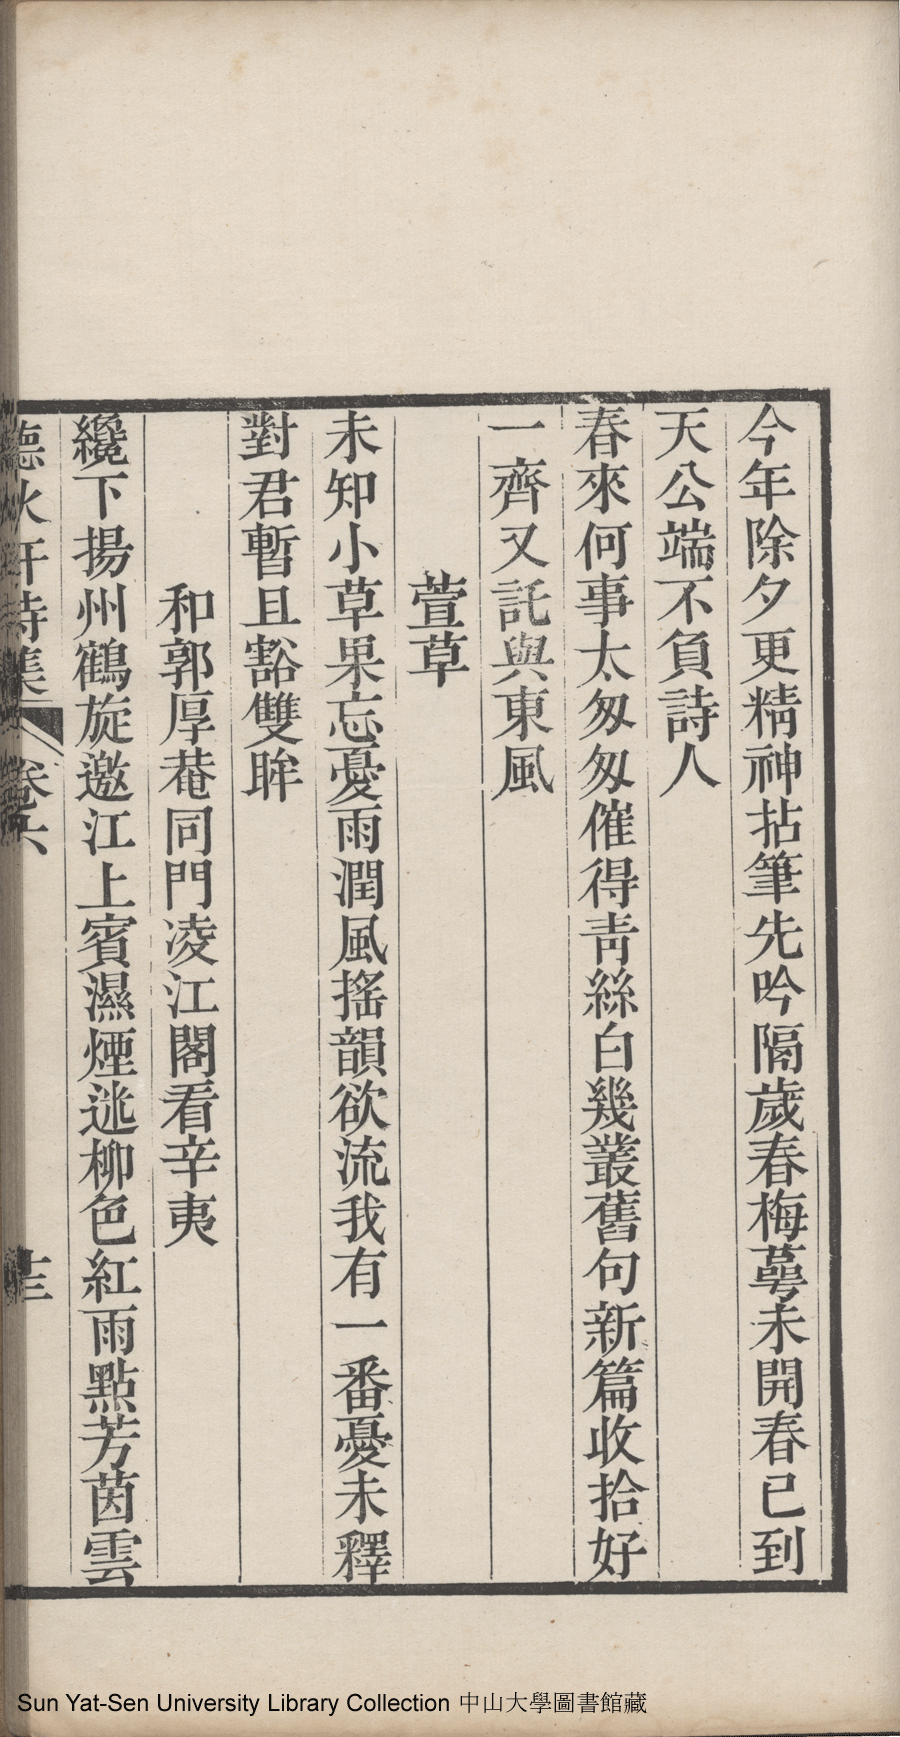 今年除夕更精神拈筆先吟隔歲春梅萼未開春已到
天公端不負詩人
春來何事太匆匆催得靑絲白幾叢舊句新篇收拾好
一齊又託與東風
萱草
未知小草果忘憂雨潤風搖韻欲流我有一番憂未釋
對君暫且豁雙眸
和郭厚菴同門凌江閣看辛夷
纔下揚州鶴旋邀江上賓濕煙迷柳色紅雨點芳茵雲
聽秋軒詩集 卷六 十三
Sun Yat-Sen University Library Collection 中山大學圖書館藏